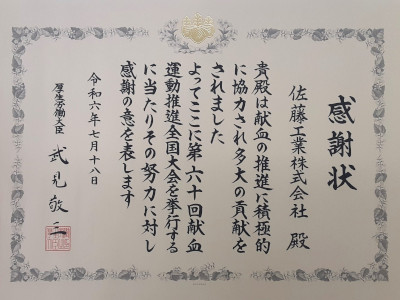 感謝状
佐藤工業株式会社 殿
貴殿は献血の推進に積極的
に協力され多大の貢献を
されました
よってここに第六十回献血
運動推進全国大会を挙行する
に当たりその努力に対し
感謝の意を表します
令和六年七月十八日
厚生労働大臣 武見敬三